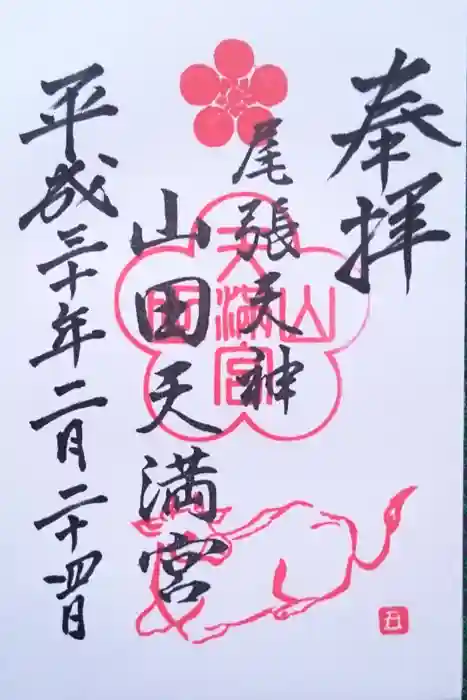 奉拝
尾張天神
山田天満宮
平成三十年二月二十四日
山田天満宮
五